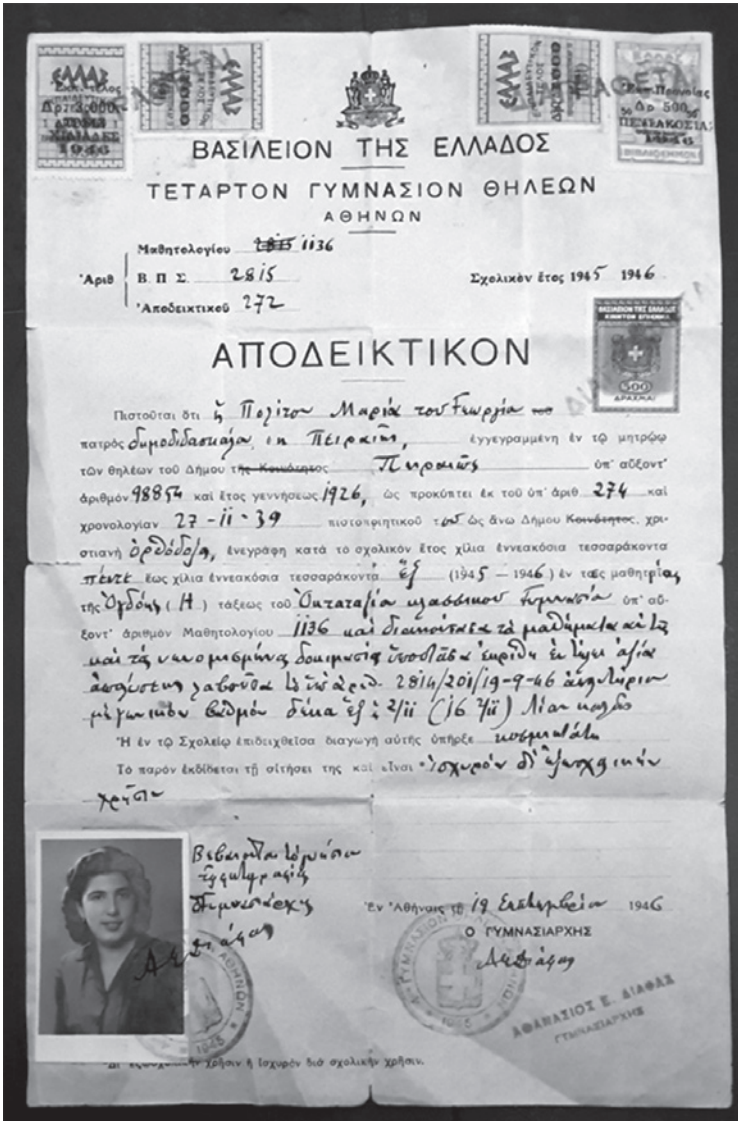 ΕΛΛΑΣ
1946
ΒΑΣΙΛΕΙΟΝ ΤΗΣ ΕΛΛΑΔΟΣ
ΤΕΤΑΡΤΟΝ ΓΥΜΝΑΣΙΟΝ ΘΗΛΕΩΝ
ΑΘΗΝΩΝ
Μαθητολογίου 1136
Ἀριθ Β. Π. Σ. 2815
Σχολικὸν ἔτος 1945 1946
Ἀποδεικτικοῦ 272
ΒΑΣΙΛΕΙΟΝ ΤΗΣ ΕΛΛΑΔΟΣ
500
ΔΡΑΧΜΑΙ
ΑΠΟΔΕΙΚΤΙΚΟΝ
Πιστοῦται ὅτι ἡ Πολίτου Μαρία του Γεωργίου
πατρὸς δημοδιδασκάλου ἐκ Πειραιῶς, ἐγγεγραμμένη ἐν τῷ μητρώῳ
τῶν θηλέων τοῦ Δήμου τῆς Κοινότητος Πειραιῶς ὑπ' αὔξοντ'
ἀριθμὸν 98854 καὶ ἔτος γεννήσεως 1926, ὡς προκύπτει ἐκ τοῦ ὑπ' ἀριθ 274 καὶ
χρονολογίαν 27-11-39 πιστοποιητικοῦ τοῦ ὡς ἄνω Δήμου Κοινότητος, χρι-
στιανὴ ὀρθόδοξος, ἐνεγράφη κατὰ τὸ σχολικὸν ἔτος χίλια ἐννεακόσια τεσσαράκοντα
πέντε ἕως χίλια ἐννεακόσια τεσσαράκοντα ἕξ (1945 — 1946) ἐν ταῖς μαθητρίαις
τῆς Ὀγδόης (Η) τάξεως τοῦ Ὀκταταξίου κλασσικοῦ Γυμνασίου ὑπ' αὔ-
ξοντ' ἀριθμὸν Μαθητολογίου 1136 καὶ διακούσασα τὰ μαθήματα
καὶ τὰς νενομισμένας δοκιμασίας ὑποστᾶσα ἐκρίθη ἀξία
ἀπολύσεως λαβοῦσα τὸ ὑπ' ἀριθ. 2814/201/19-9-46 ἀπολυτήριον
μὲ γενικὸν βαθμὸν δέκα ἕξ 2/11 (16 2/11) Λίαν καλῶς
Ἡ ἐν τῷ Σχολείῳ ἐπιδειχθεῖσα διαγωγὴ αὐτῆς ὑπῆρξε κοσμιωτάτη
Τὸ παρὸν ἐκδίδεται τῇ αἰτήσει της καὶ εἶναι ἰσχυρὸν δι' ἐξωσχολικὴν
χρῆσιν
Βεβαιοῦται τὸ γνήσιον
τῆς φωτογραφίας
Ὁ Γυμνασιάρχης
Ἐν Ἀθήναις τῇ 19 Σεπτεμβρίου 1946
Ο ΓΥΜΝΑΣΙΑΡΧΗΣ
ΑΘΑΝΑΣΙΟΣ Ε. ΔΙΑΦΑΣ
ΓΥΜΝΑΣΙΑΡΧΗΣ
ΑΘΗΝΩΝ
1945
Δι' ἐξωσχολικὴν χρῆσιν ἢ ἰσχυρὸν διὰ σχολικὴν χρῆσιν.